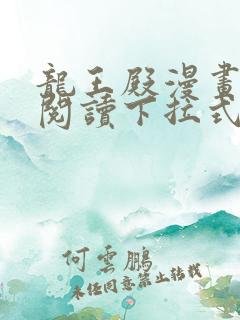 龍王殿漫畫
閱讀下拉式
何雲鵬
未经同意禁止转载